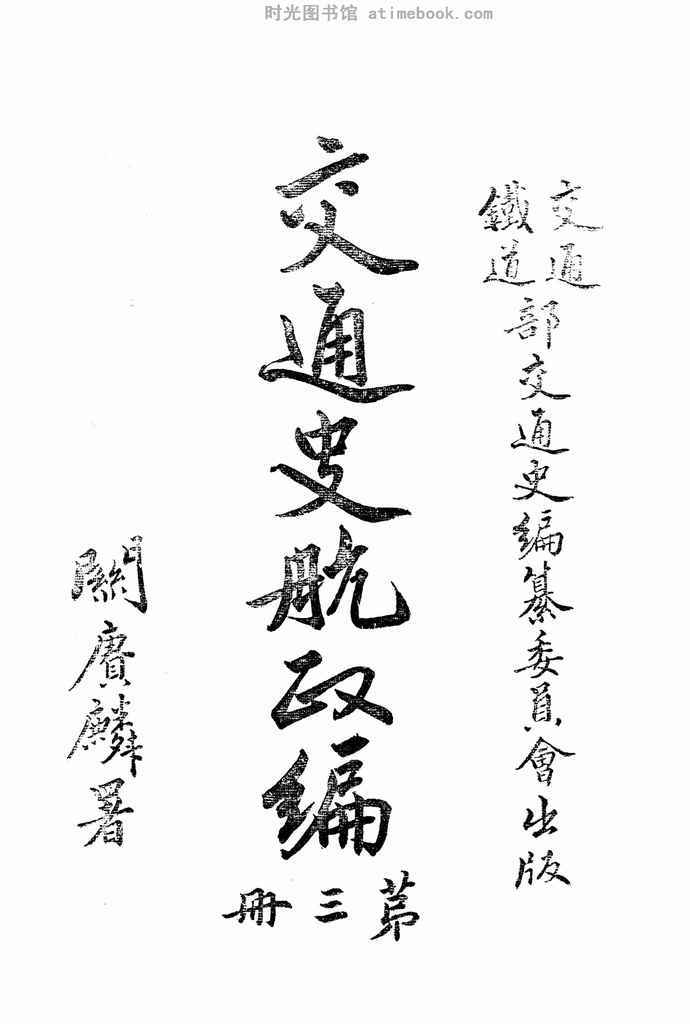 时光图书馆 atimebook.com
交通
鐵道
部交通史編纂委員會出版
交通史航政編
第三冊
關賡麟署